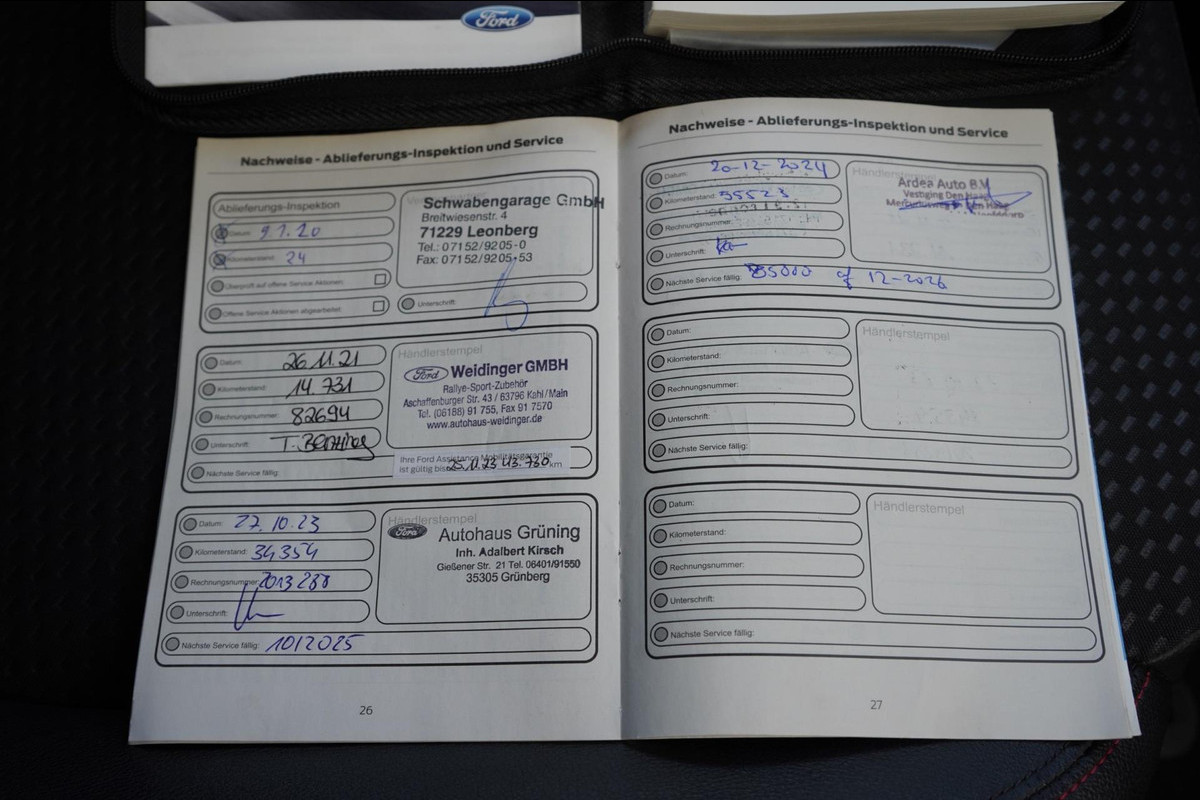 Ford
Nachweise - Ablieferungs-Inspektion und Service
Ablieferungs-Inspektion
Datum: 9.1.20
Kilometerstand: 24
Überprüft auf offene Service Aktionen:
Offene Service Aktionen abgearbeitet:
Schwabengarage GmbH
Breitwiesenstr. 4
71229 Leonberg
Tel.: 07152/9205-0
Fax: 07152/9205-53
Unterschrift:
Datum: 26.11.21
Kilometerstand: 14.731
Rechnungsnummer: 82694
Unterschrift:
Nächste Service fällig:
Händlerstempel
Ford Weidinger GMBH
Rallye-Sport-Zubehör
Aschaffenburger Str. 43 / 63796 Kahl/Main
Tel. (06188) 91 755, Fax 91 7570
www.autohaus-weidinger.de
Ihre Ford Assistance Mobilitätsgarantie
ist gültig bis 25.11.23 km
Datum: 27.10.23
Kilometerstand: 34354
Rechnungsnummer:
Unterschrift:
Nächste Service fällig: 10/2025
Händlerstempel
Ford Autohaus Grüning
Inh. Adalbert Kirsch
Gießener Str. 21 Tel. 06401/91550
35305 Grünberg
26
Nachweise - Ablieferungs-Inspektion und Service
Datum: 20-12-2024
Kilometerstand: 55523
Rechnungsnummer:
Unterschrift:
Nächste Service fällig: 85000 of 12-2026
Händlerstempel
Ardea Auto B.V.
Vestiging Den Haag
Datum:
Kilometerstand:
Rechnungsnummer:
Unterschrift:
Nächste Service fällig:
Händlerstempel
Datum:
Kilometerstand:
Rechnungsnummer:
Unterschrift:
Nächste Service fällig:
Händlerstempel
27